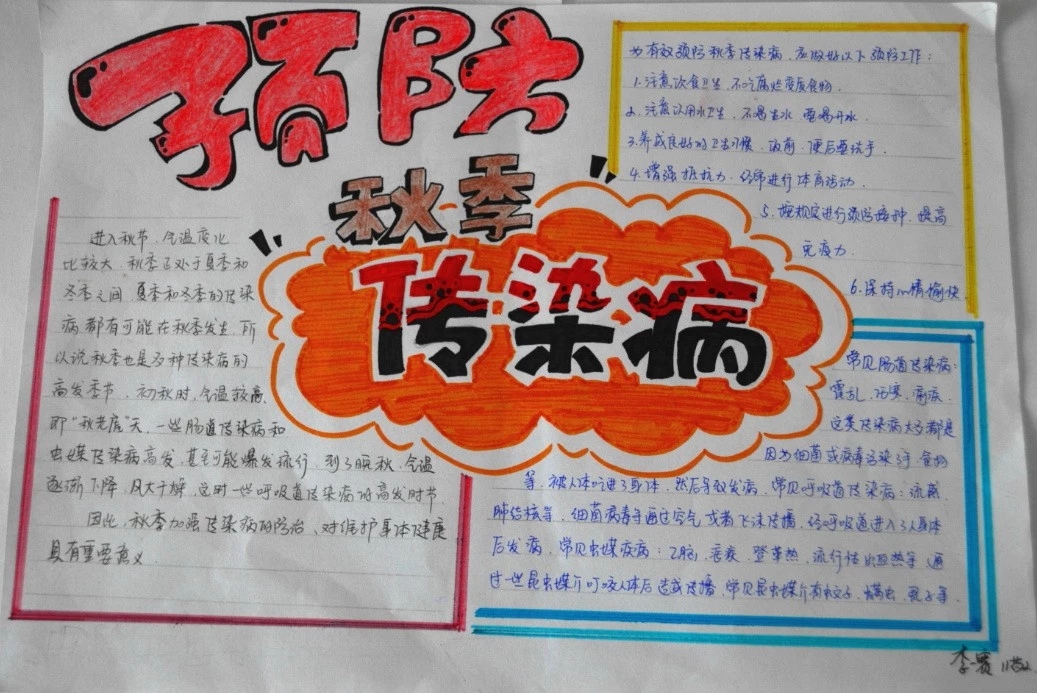 预防
秋季
传染病
为有效预防秋季传染病，应做好以下预防工作：
1.注意饮食卫生，不吃腐烂变质食物．
2.注意饮用水卫生，不喝生水，要喝开水．
3.养成良好的卫生习惯，饭前、便后要洗手．
4.增强抵抗力，经常进行体育活动．
5.按规定进行预防接种，提高
免疫力．
6.保持心情愉快．
进入秋节，气温变化
比较大，秋季正处于夏季和
冬季之间，夏季和冬季的传染
病都有可能在秋季发生，所
以说秋季也是多种传染病的
高发季节．初秋时，气温较高，
即“秋老虎”天，一些肠道传染病和
虫媒传染病高发，甚至可能爆发流行，到了晚秋，气温
逐渐下降，风大干燥，这时一些呼吸道传染病的高发时节．
因此，秋季加强传染病的防治，对保护身体健康
具有重要意义．
常见肠道传染病：
霍乱、伤寒、痢疾．
这类传染病大多都是
因为细菌或病毒污染了手、食物
等，被人体吃进了身体，然后导致发病，常见呼吸道传染病：流感、
肺结核等，细菌病毒等通过空气或者飞沫传播，经呼吸道进入了人身体
后发病，常见虫媒疾病：乙脑、疟疾、登革热、流行性出血热等，通
过一些昆虫媒介叮咬人体后造成传播，常见昆虫媒介有蚊子、螨虫、虱子等．
李赛